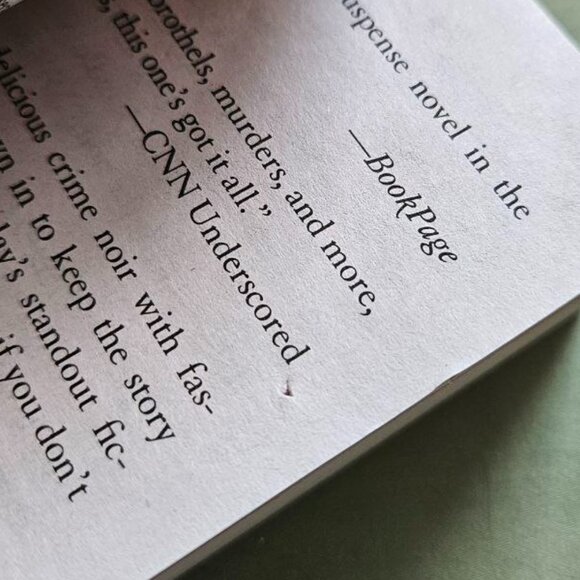 uspense novel in the
—BookPage
brothels, murders, and more,
this one's got it all.”
—CNN Underscored
delicious crime noir with fas-
in to keep the story
standout fic-
if you don't